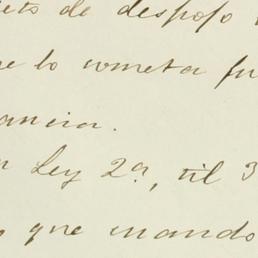 de despojo
lo cometa
ancia.
Ley 2ª, tit 3
que mando